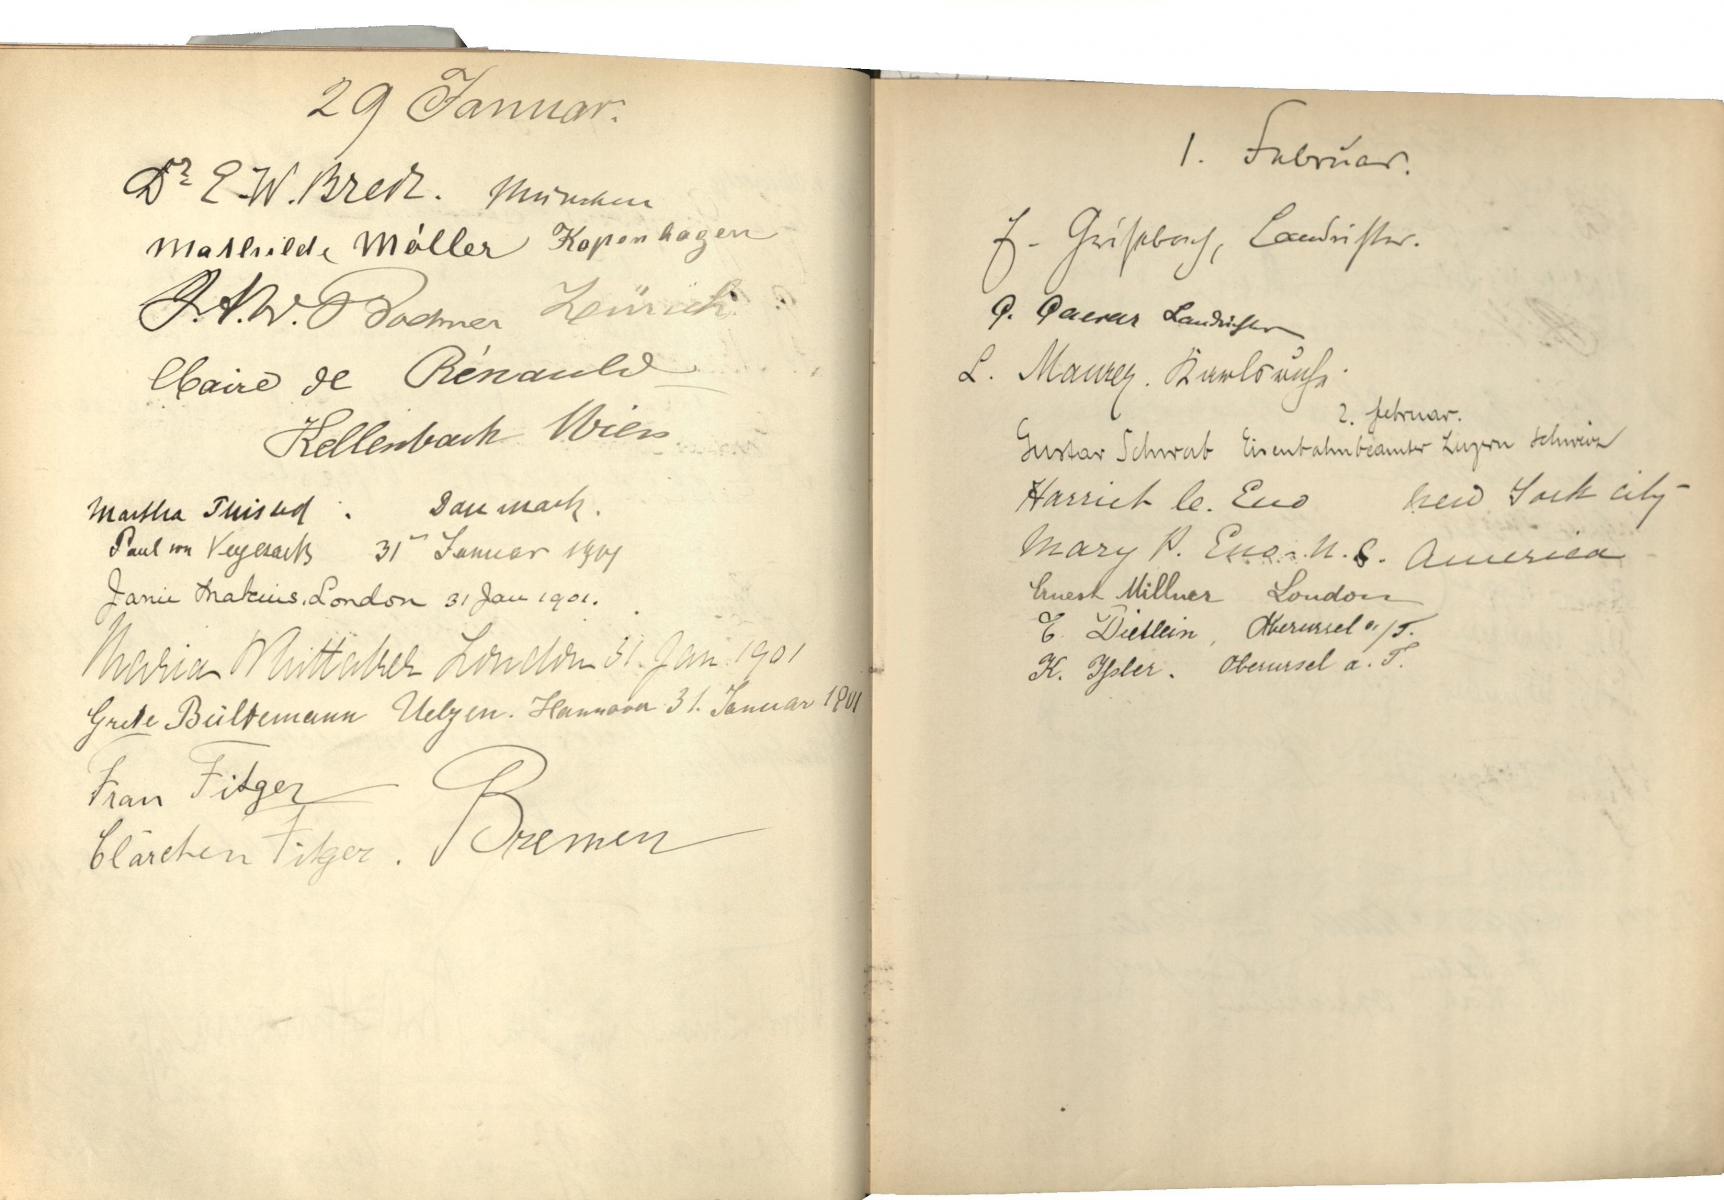 29 Januar.
Dr E. W. Bredt. München
Mathilde Möller Kopenhagen
J. A. W. Bodmer Zürich
Claire de Rénauld
Kellenbach Wien
Martha Thisted. Danmark.
Paul von Vegesack 31 Januar 1901
Janie London 31 Jan 1901.
Maria Whittaker London 31. Jan 1901
Grete Bültemann Uelzen. Hannover 31. Januar 1901
Frau Fitger
Clärchen Fitger. Bremen
1. Februar.
F. Grisebach, Landrichter.
Landrichter
L. Maurer. Karlsruhe.
2. Februar.
Gustav Schwab Eisenbahnbeamter Luzern Schweiz
Harriet C. Eno New York City
Mary P. Eno. N. S. America
Ernest Millner London
E. Dietlein, Oberursel a/T.
K. Oberursel a. T.